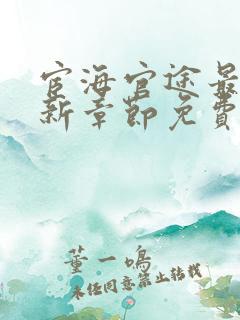 宦海官途最
新章節免費
董一鳴
未经同意禁止转载